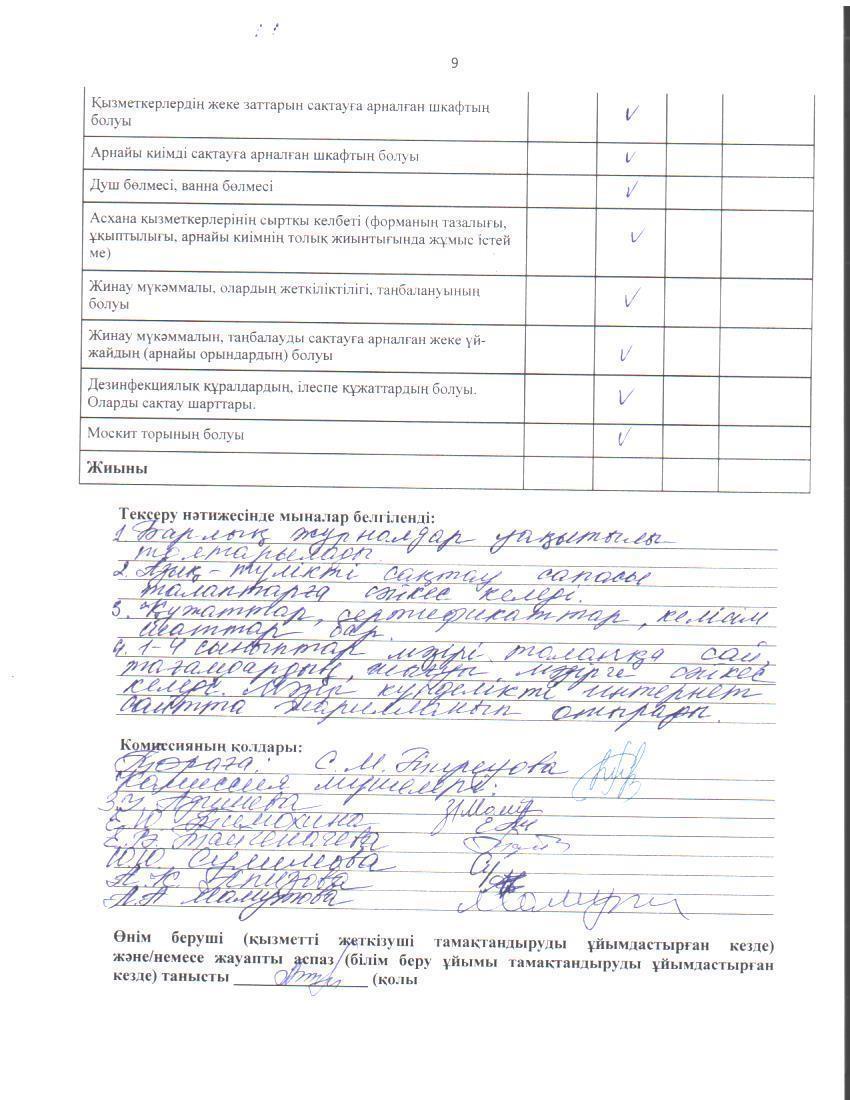 9
Қызметкерлердің жеке заттарын сақтауға арналған шкафтың
болуы
Арнайы киімді сақтауға арналған шкафтың болуы
Душ бөлмесі, ванна бөлмесі
Асхана қызметкерлерінің сыртқы келбеті (форманың тазалығы,
ұқыптылығы, арнайы киімнің толық жиынтығында жұмыс істей
ме)
Жинау мүкәммалы, олардың жеткіліктілігі, таңбалануының
болуы
Жинау мүкәммалын, таңбалауды сақтауға арналған жеке үй-
жайдың (арнайы орындардың) болуы
Дезинфекциялық құралдардың, ілеспе құжаттардың болуы.
Оларды сақтау шарттары.
Москит торының болуы
Жиыны
Тексеру нәтижесінде мыналар белгіленді:
1. Барлық журналдар уақытылы
толтырылады.
2. Азық-түлікті сақтау сапасы
талаптарға сәйкес келеді.
3. Құжаттар, сертификаттар, келісім
шаттар бар.
4. 1-4 сыныптар мәзірі талапқа сай,
тағамдардың, мәзірге сәйкес
келеді. Мәзір күнделікті интернет
сайтта жарияланып отырады.
Комиссияның қолдары:
Төраға: С. М.
Комиссия мүшелері:
З.У.
Е.Ю.
Е.В.
Ю.Ю.
А.К.
А.А Мамутова
Өнім беруші (қызметті жеткізуші тамақтандыруды ұйымдастырған кезде)
және/немесе жауапты аспаз (білім беру ұйымы тамақтандыруды ұйымдастырған
кезде) танысты ____________________ (қолы